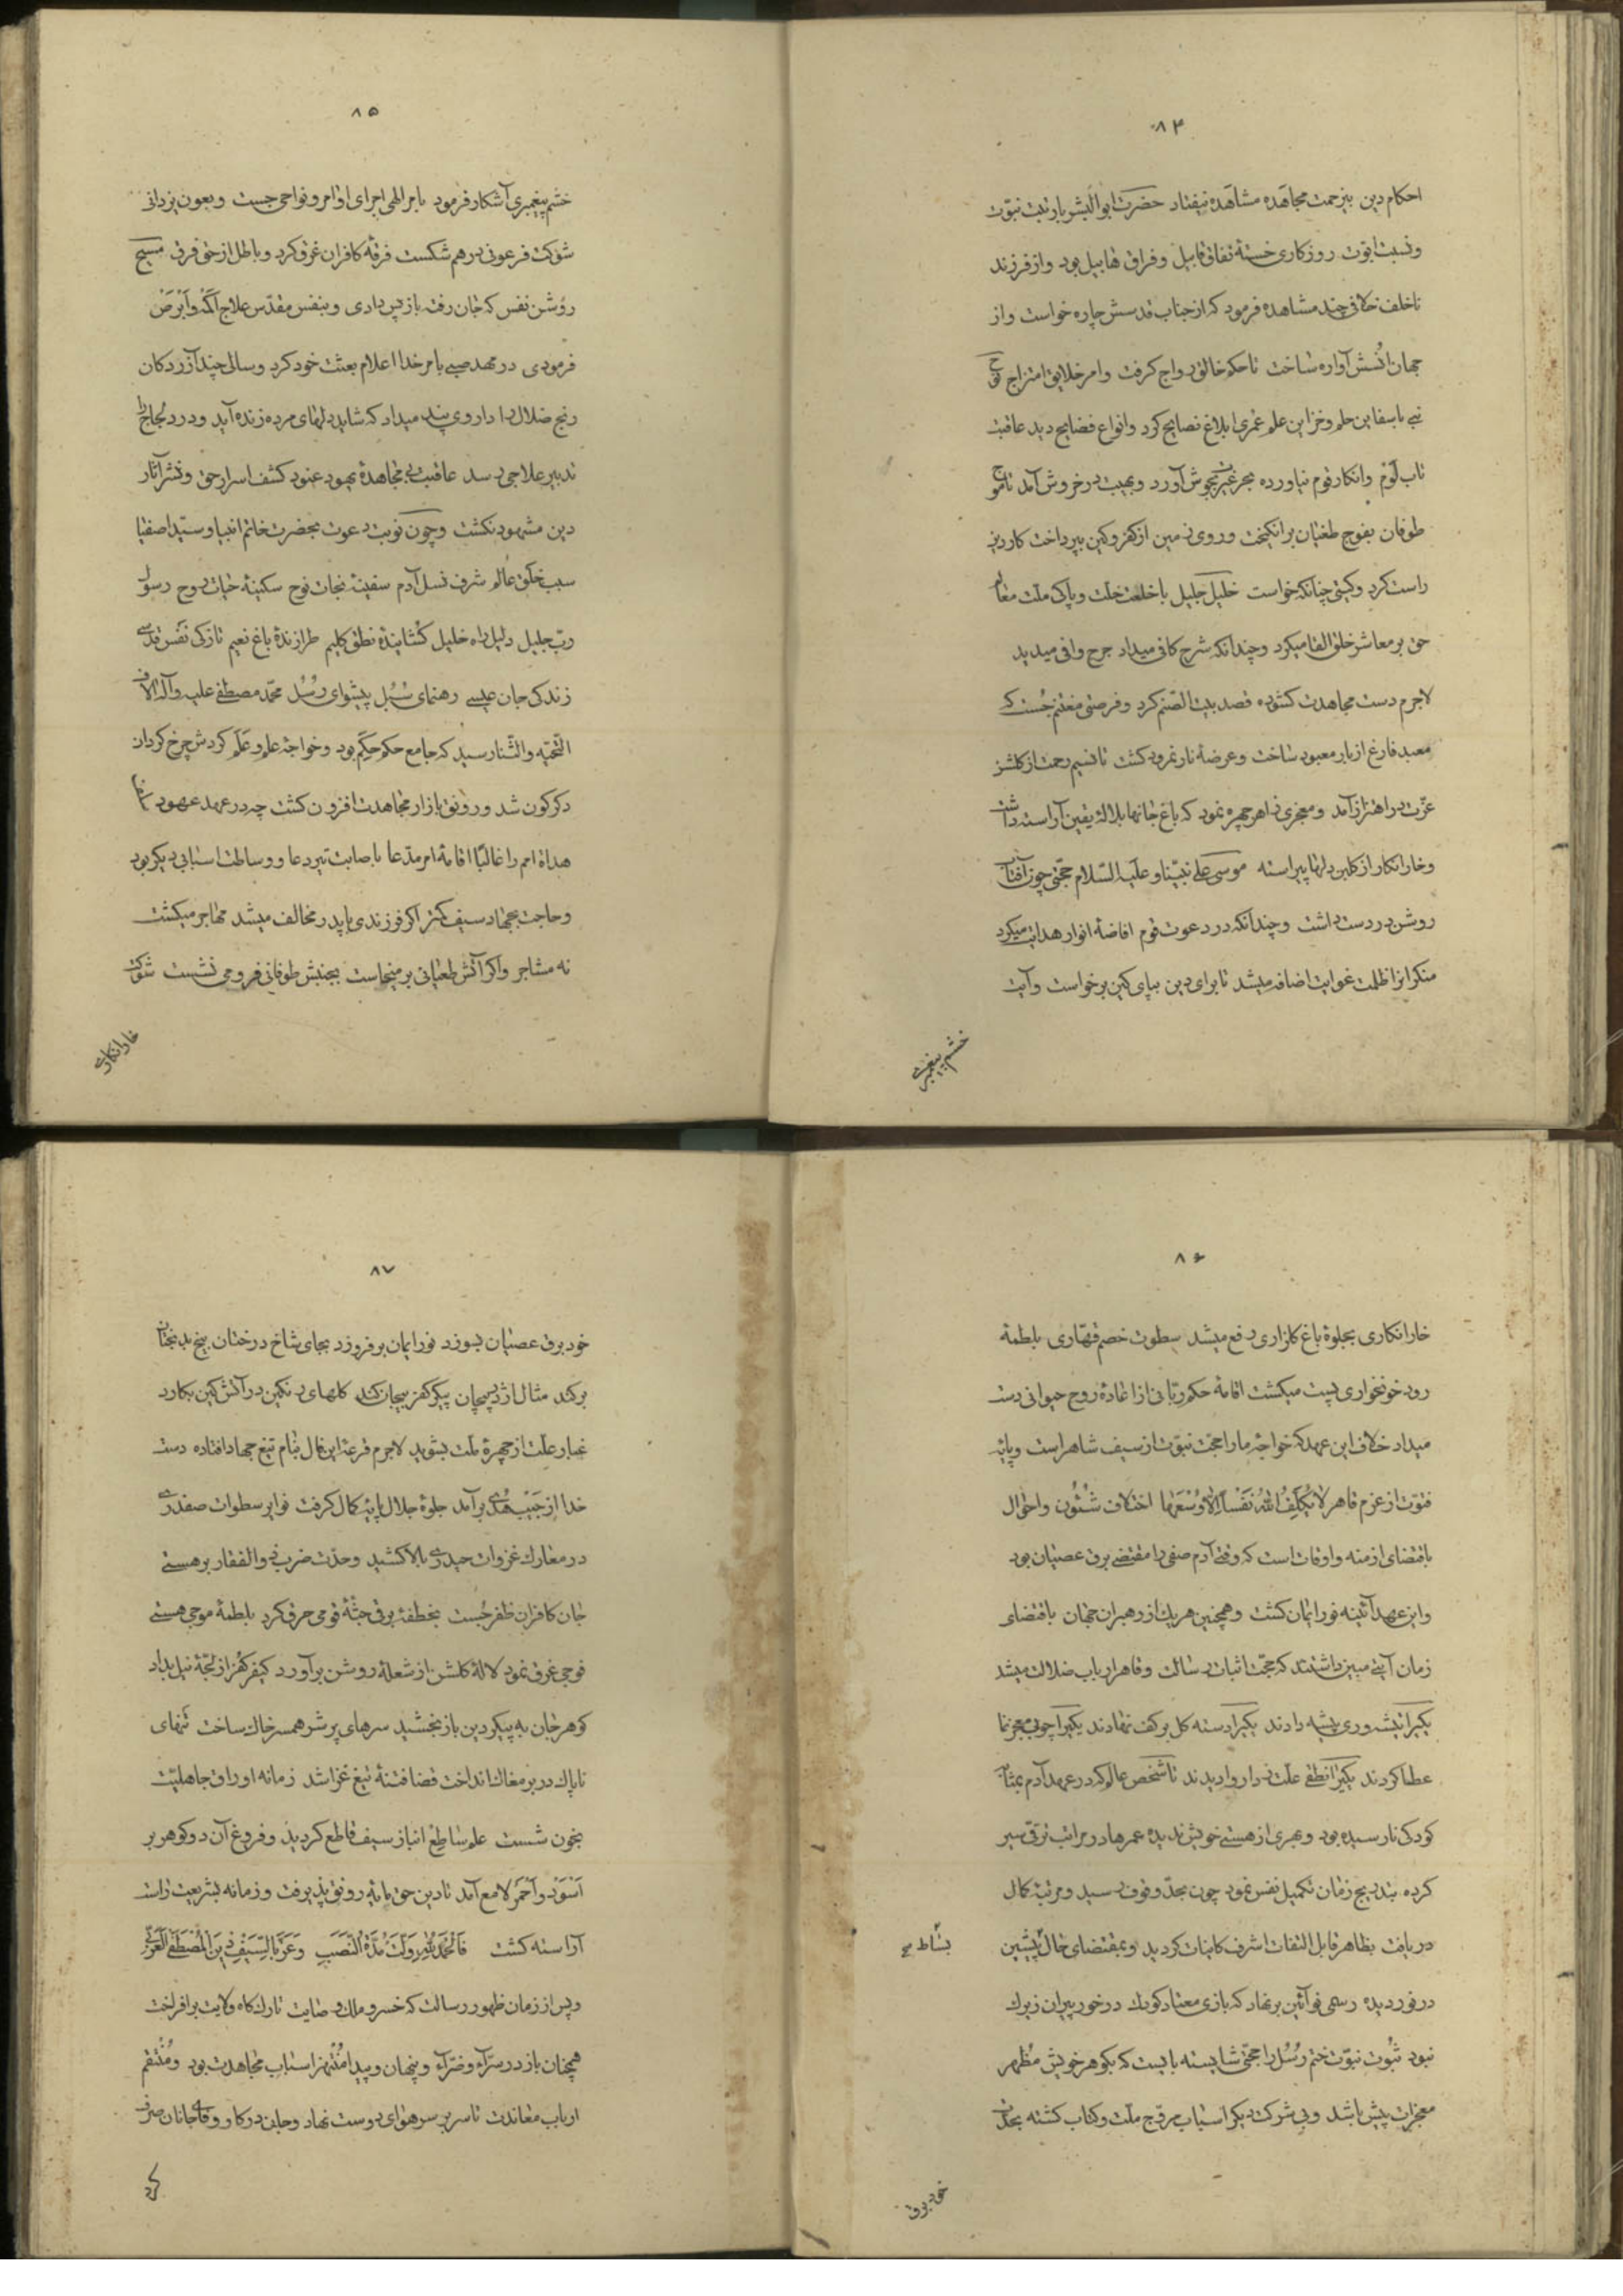 ۸۴
احکام دین بیزحمت مجاهده مشاهده نیفتاد حضرت ابوالبشر بارتبت نبوّت
ونسبت ابوّت روزکاری خستهٔ نفاق قابیل وفراق هابیل بود واز فرزند
ناخلف خلافی چند مشاهده فرمود که از جناب قدسش چاره خواست واز
جهان اُنسش آواره ساخت تا حکم خالق رواج کرفت وامر خلایق امتزاج نوح
نبی با سفاین حلم وخزاین علم عمری ابلاغ نصایح کرد وانواع فضایح دید عاقبت
تاب لَوْم وانکار قوم نیاورده بحر غیرتش بجوش آورد وبهیبت در خروش آمد تا موج
طوفان بفوج طغیان برانکیخت وروی زمین از کفر وکین بپرداخت کار دین
راست کرد وکیتی چنانکه خواست خلیل جلیل با خلعت خلّت وپاکی ملّت معالم
حق بر معاشر خلق القا میکرد وچندانکه شرح کافی میداد جرح وافی میدید
لاجرم دست مجاهدت کشوده قصد بیت الصّنم کرد وفرصتی مغتنم جُست که
معبد فارغ از بار معبود ساخت وعرضهٔ نار نمرود کشت تا نسیم رحمت از کلشن
عزّت در اهتزاز آمد ومعجزی زاهر چهره نمود که باغ جانها بلالهٔ یقین آراسته داشت
وخار انکار از کلبن دلها پیراسته موسی علی نبیّنا وعلیه السّلام حجّتی چون آفتاب
روشن در دست داشت وچندانکه در دعوت قوم افاضهٔ انوار هدایت میکرد
منکرانرا ظلمت غوایت اضافه میشد تا برای دین بپای کین برخواست وآیت
خشم پیغمبری
۸۵
خشم پیغمبری آشکار فرمود بامر الهی اجرای اوامر ونواحی جست وبعون یزدانی
شوکت فرعونی درهم شکست فرقهٔ کافران غرق کرد وباطل از حق فرق مسیح
روشن نفس که جان رفته باز پس داری وبنفس مقدّس علاج اَکْمَه واَبْرَصْ
فرمودی در مهد صبی بامر خدا اعلام بعثت خود کرد وسالی چند آزردکان
رنج ضلال را داروی پند میداد که شاید دلهای مرده زنده آید ودرد لجاج را
تدبیر علاجی رسد عاقبت بی مجاهدهٔ یهود عنود کشف اسرار حق ونشر آثار
دین مشهود نکشت وچون نوبت دعوت بحضرت خاتم انبیا وسیّد اصفیا
سبب خلق عالم شرف نسل آدم سفینهٔ نجات نوح سکینهٔ حیات روح رسول
ربّ جلیل دلیل راه خلیل کشایندهٔ نطق کلیم طرازندهٔ باغ نعیم تازکی نَفَس قدسی
زندکی جان عیسی رهنمای سُبُل پیشوای رُسُل محمّد مصطفی علیه وآله آلاف
التّحیّه والثّنا رسید که جامع حکم حِکَم بود وخواجهٔ علم وعَلَم کردش چرخ کردان
دکرکون شد ورونق بازار مجاهدت افزون کشت چه در عهد عهود
هداة امم را غالبًا اقامهٔ امر مدّعا باصابت تیر دعا ووساطت اسبابی دیکر بود
وحاجت بجهاد سیف کمتر اکر فرزندی با پدر مخالف میشد مهاجر میکشت
نه مشاجر واکر آتش طغیانی بر میخاست بجنبش طوفانی فرو می نشست شوکت
خار انکاری
۸۶
خار انکاری بجلوهٔ باغ کلزاری دفع میشد سطوت خصم قهّاری بلطمهٔ
رود خونخواری پست میکشت اقامهٔ حکم ربّانی از اعادهٔ روح حیوانی دست
میداد خلاف این عهد که خواجهٔ ما را حجّت نبوّت از سیف شاهر است وپایهٔ
فتوّت از عزم قاهر لَا یُکَلِّفُ اللهُ نَفْسًا اِلَّا وُسْعَهَا اختلاف شُئُون واحوال
باقتضای ازمنه واوقات است که وقتی آدم صفی را مقتضی برق عصیان بود
واین عهد آئینه نور ایمان کشت وهمچنین هریک از رهبران جهان باقتضای
زمان آیتی مبین داشتند که حجّت اثبات رسالت وقاهر ارباب ضلالت میشد
یکیرا تیشه وری پیشه دادند یکیرا دسته کل بر کف نهادند یکیرا چوبی معجز نما
عطا کردند یکیرا نطفی علّت زدا روا دیدند تا شخص عالم که در عهد آدم بمثابه
کودکی نارسیده بود وبهری از هستی خویش ندیده عمرها در مراتب ترقّی سیر
کرده بتدریج زمان تکمیل نفس نمود چون بحدّ وقوف رسید ومرتبهٔ کمال
دریافت بظاهر قابل التفات اشرف کاینات کردید وبمقتضای حال پیشین بساط
در نوردیده رسمی نو آئین بر نهاد که بازی معتاد کودک در خور پیران زیرک
نبود ثبوت نبوّت ختم رُسُل را حجّتی شایسته بایست که بکوهر خویش مُظهر
معجزات پیش باشد وبی شرکت دیکر اسباب مروّج ملّت وکتاب کشته بحدّت
خود برق
۸۷
خود برق عصیان بسوزد نور ایمان برفروزد بجای شاخ درختان بیخ بدبختان
برکند مثال اژدر پیچان پیکر کفر بیجان کند کلهای رنکین در آتش کین بکارد
غبار علّت از چهرهٔ ملّت بشوید لاجرم قرعهٔ این فال بنام تیغ جهاد افتاده دست
خدا از جَیْب هُدی برآمد جلوهٔ جلال پایهٔ کمال کرفت نوایر سطوات صفدری
در معارک غزوات حیدری بالا کشید وحدّت ضربت ذوالفقار بر هستی
جان کافران ظفر جُست بخطفهٔ برقی جثّهٔ قومی حرق کرد بلطمهٔ موجی هستی
فوجی غرق نمود لالهٔ کلشن از شعلهٔ روشن برآورد کیفر کفر از لجّهٔ نیل بداد
کوهر جان به پیکر دین باز بخشید سرهای پر شر همسر خاک ساخت تنهای
ناپاک در بر مغاک انداخت قضا فتنهٔ تیغ غزا شد زمانه اوراق جاهلیّت
بخون شست علم ساطع انباز سیف قاطع کردید وفروغ آن دو کوهر بر
اَسْوَد واَحْمَر لامع آمد تا دین حق مایهٔ رونق پذیرفت وزمانه بشریعت راست
آراسته کشت فَالْحَمْدُ لِلّٰهِ وَلَّتْ مُدَّةُ النَّصَبِ وَعَزَّ بِالسَّیْفِ دِینُ الْمُصْطَفَی الْعَرَبِیِّ
وپس از زمان ظهور رسالت که خسرو ملک وصایت تارک کاه ولایت برافراخت
همچنان باز در سرّآء وضرّآء وپنهان وپیدا مُنْتَهِز اسباب مجاهدت بود ومُنْتَقم
ارباب معاندت تا سر بر سر هوای دوست نهاد وجان در کار وفای جانان صرف
کرد